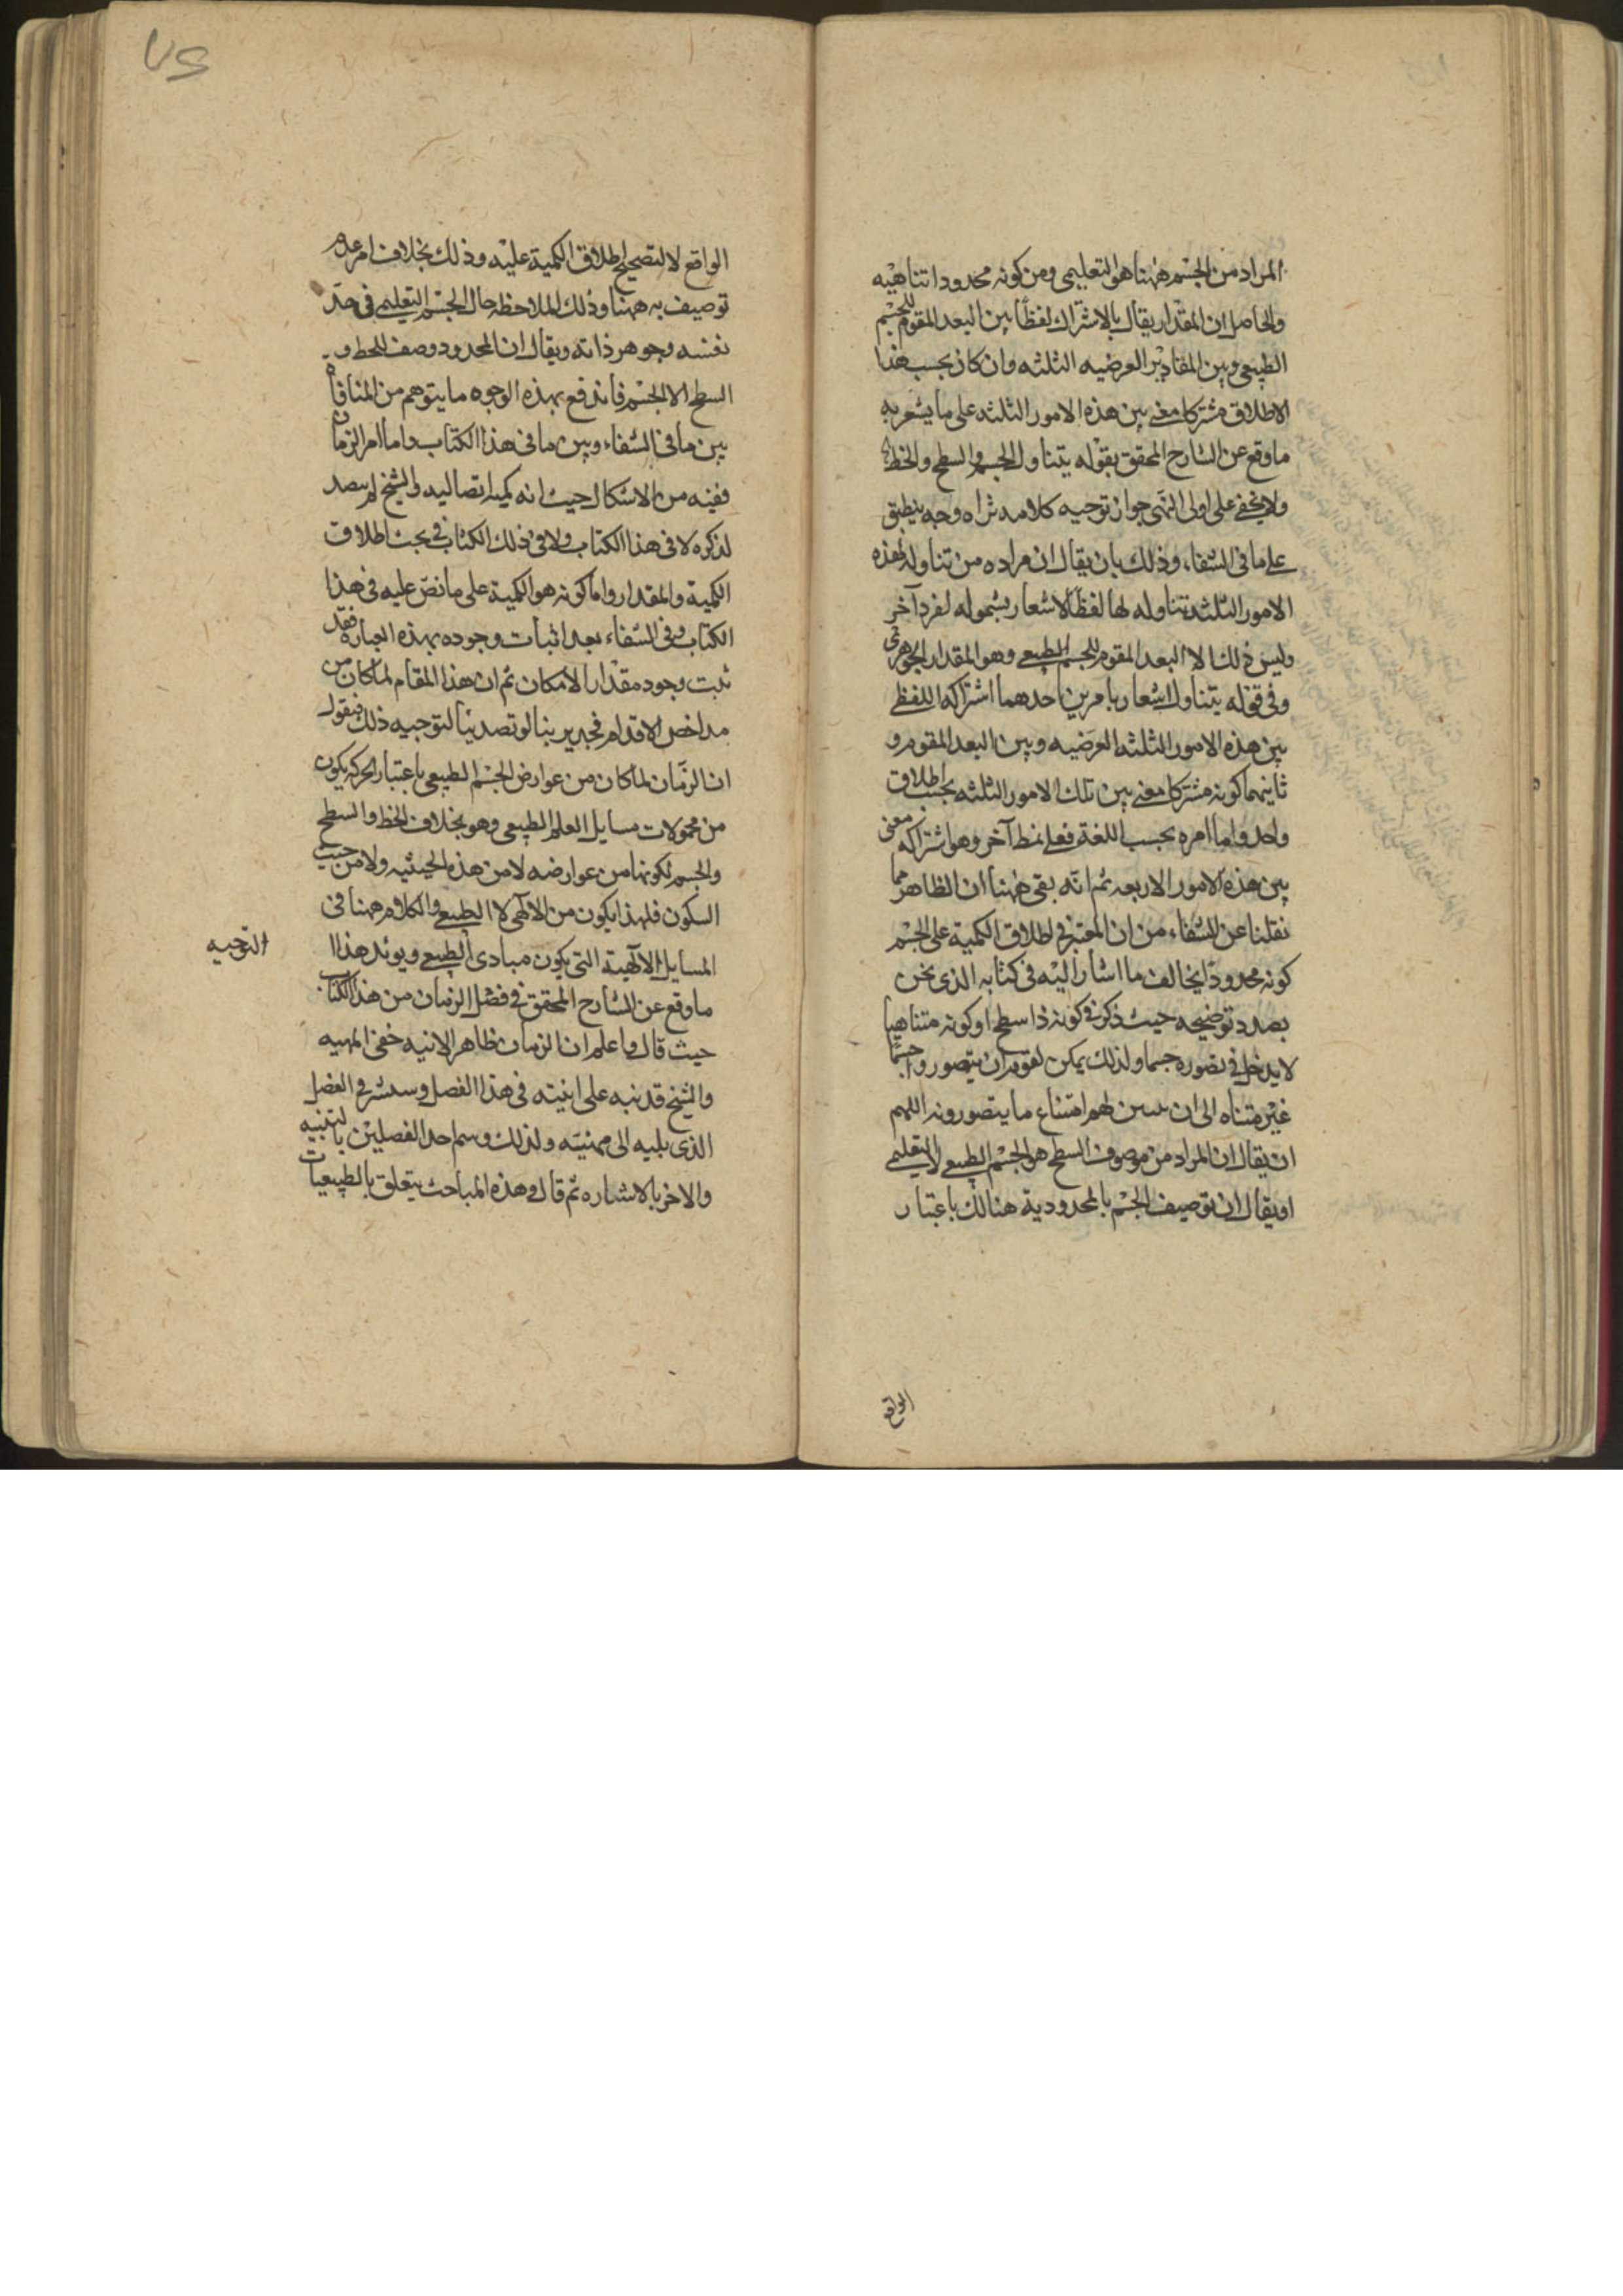 المراد من الجسم ههنا هو التعليمى ومن كونه محدودا تناهيه
والحاصل ان المقدار يقال بالاشتراك لفظا بين البعد المقوم للجسم
الطبيعى وبين المقادير العرضيه الثلثه وان كان بحسب هذا
الاطلاق مشتركا معنى بين هذه الامور الثلثه على ما يشعر به
ما وقع عن الشارح المحقق بقوله يتناول الجسم والسطح والخط
ولا يخفى على اولى النهى جواز توجيه كلامه وجه ينطبق
على ما فى الشفاء وذلك بان يقال ان مراده من تناوله لهذه
الامور الثلثه تناوله لها لفظا لاشعار بشموله لفرد آخر
وليس ذلك الا البعد المقوم للجسم الطبيعى وهو المقدار الجوهرى
وفى قوله يتناول اشعار بامرين احدهما اشتراكه اللفظى
بين هذه الامور الثلثه العرضيه وبين البعد المقوم و
ثانيهما كونه مشتركا معنى بين تلك الامور الثلثه بحسب اطلاق
واحد واما امره بحسب اللغة فعلى نمط آخر وهو اشتراكه معنى
بين هذه الامور الاربعه ثم انه بقى ههنا ان الظاهر مما
نقلنا عن الشفاء من ان المعتبر فى اطلاق الكمية على الجسم
كونه محدودا يخالف ما اشار اليه فى كتابه الذى نحن
بصدد توضيحه حيث ذكر فى كونه ذا سطح او كونه متناهيا
لا يدخل فى تصوره جسما ولذلك يمكن لقوم ان يتصوروا جسما
غير متناه الى ان يتبين لهم امتناع ما يتصورونه اللهم
ان يقال ان المراد من موصوف السطح هو الجسم الطبيعى لا التعليمى
او يقال ان توصيف الجسم بالمحدودية هنالك باعتبار
الواقع
٧٥
الواقع لا لتصحيح اطلاق الكمية عليه وذلك بخلاف امر عدم
توصيفه به ههنا وذلك لملاحظه حال الجسم التعليمى فى حد
نفسه وجوهر ذاته ويقال ان المحدود وصف للخط و
السطح لا الجسم فاندفع بهذه الوجوه ما يتوهم من المنافاة
بين ما فى الشفاء وبين ما فى هذا الكتاب واما امر الزمان
ففيه من الاشكال حيث انه كمية اتصاليه والشيخ لم يتصد
لذكره لا فى هذا الكتاب ولا فى ذلك الكتاب فى بحث اطلاق
الكمية والمقدار واما كونه هو الكمية على ما نص عليه فى هذا
الكتاب وفى الشفاء بعد اثبات وجوده بهذه العباره فقد
ثبت وجود مقدار الامكان ثم ان هذا المقام لما كان من
مداحض الاقدام فجدير بنا لو تصدينا لتوجيه ذلك فنقول
ان الزمان لما كان من عوارض الجسم الطبيعى باعتبار الحركه يكون
من محمولات مسايل العلم الطبيعى وهو بخلاف الخط والسطح
والجسم لكونها من عوارضه لا من هذه الحيثيه ولا من حيث
السكون فلهذا يكون من الآلهى لا الطبيعى والكلام ههنا فى
المسايل الآلهية التى يكون مبادى الطبيعى ويويد هذا
التوجيه
ما وقع عن الشارح المحقق فى فصل الزمان من هذا الكتاب
حيث قال واعلم ان الزمان ظاهر الانيه خفى المهيه
والشيخ قد نبه على انيته فى هذا الفصل وسيشير فى الفصل
الذى يليه الى مهيته ولذلك وسم احد الفصلين بالتنبيه
والاخر بالاشاره ثم قال وهذه المباحث يتعلق بالطبيعيات